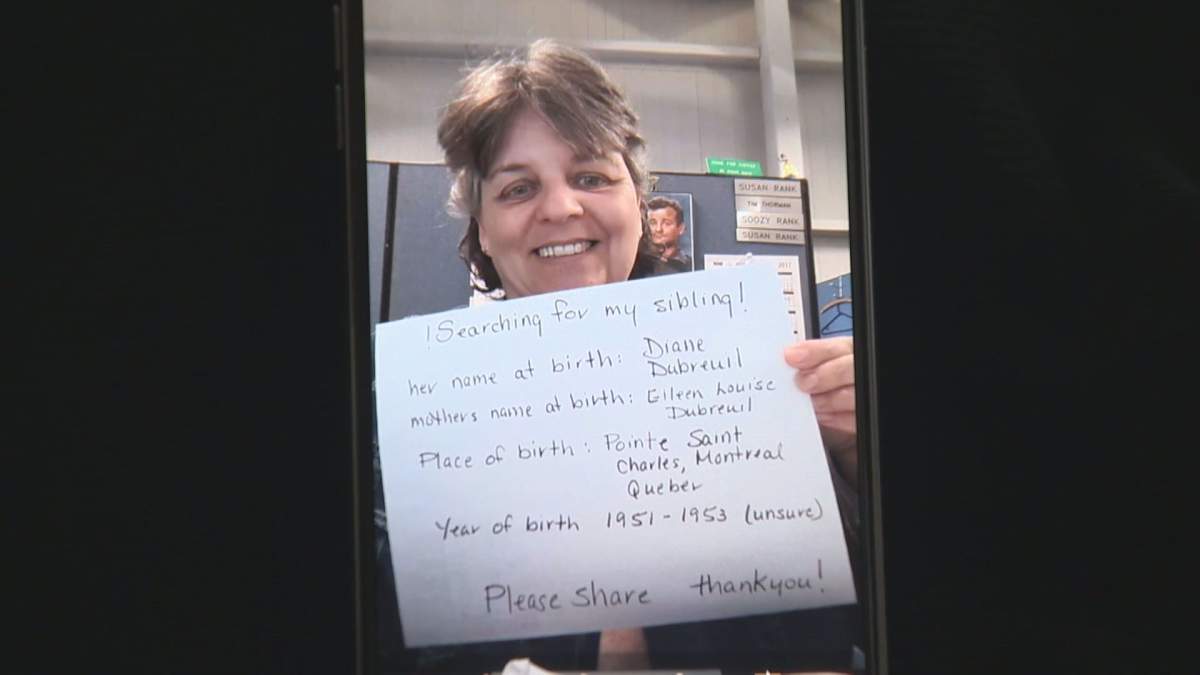 SUSAN RANK
TIM THORMAN
SOOZY RANK
SUSAN RANK
2017
!Searching for my sibling!
her name at birth: Diane
Dubreuil
mothers name at birth: Eileen Louise
Dubreuil
Place of birth: Pointe Saint
Charles, Montreal
Quebec
Year of birth 1951-1953 (unsure)
Please share thankyou!